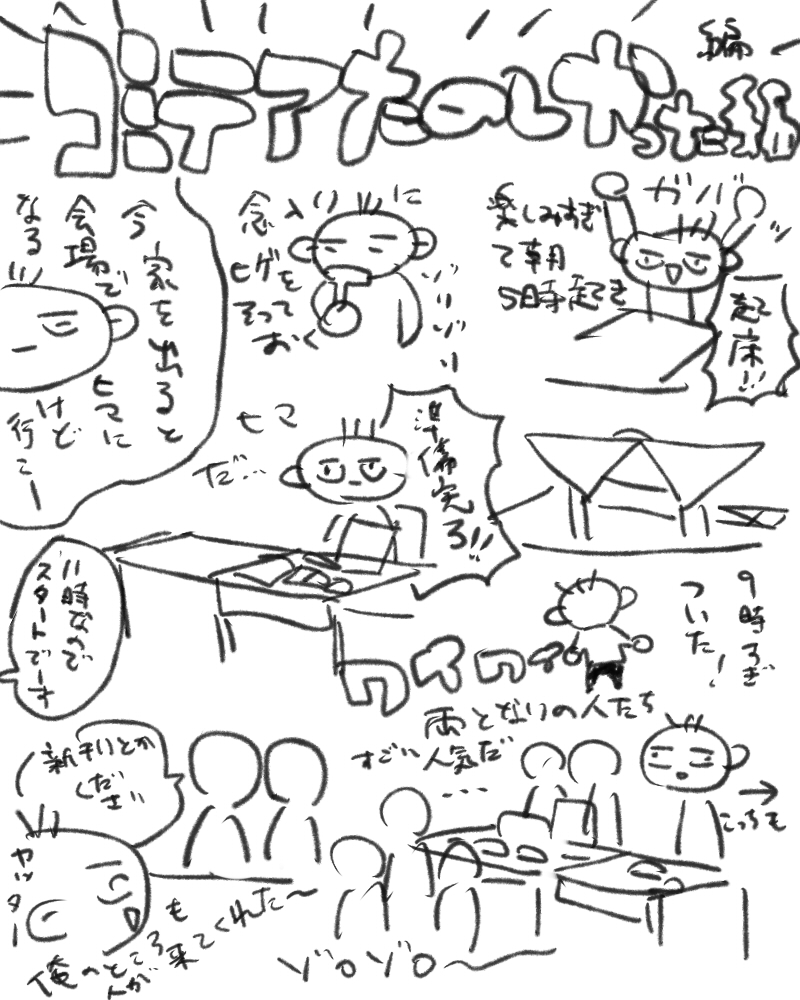 コミティアたのしか
った編
編
楽しみすぎ
て朝
5時起き
ガバ
起床!!
念入りに
ヒゲを
そって
おく
ゾリゾリ
今家を出ると
会場でヒマに
なるけど
行こー
9時すぎ
ついた!
準備完
了!!
ヒマ
だ…
11時なので
スタートでーす
ワイワイ
両となりの人たち
すごい人気だ
…
→
こっちも
ゾロゾロ〜
新刊とか
くださ
ヤッター
俺のところも
人が来てくれた〜